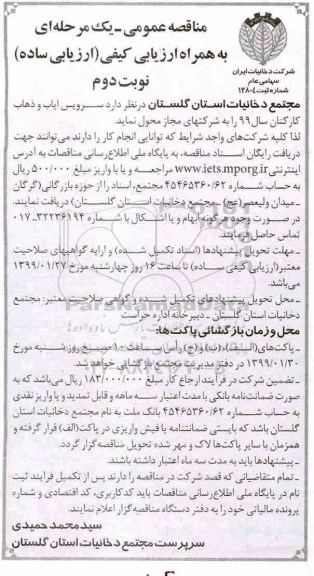 مناقصه عمومی ـ یک مرحله‌ای
به همراه ارزیابی کیفی (ارزیابی ساده)
نوبت دوم
شرکت دخانیات ایران
سهامی عام
شماره ثبت ۱۲۸۰۴
مجتمع دخانیات استان گلستان درنظر دارد سرویس ایاب و ذهاب
کارکنان سال ۹۹ را به شرکتهای مجاز محول نماید.
لذا کلیه شرکت‌های واجد شرایط که توانایی انجام کار را دارند می‌توانند جهت
دریافت رایگان اسناد مناقصه، به پایگاه ملی اطلاع‌رسانی مناقصات به آدرس
اینترنتی www.iets.mporg.ir مراجعه و یا با واریز مبلغ ۵۰۰/۰۰۰ ریال
به حساب شماره ۴۵۴۶۵۳۶۰/۶۲ مجتمع، اسناد را از حوزه بازرگانی (گرگان
ـ میدان ولیعصر (عج) ـ مجتمع دخانیات استان گلستان) دریافت نمایند.
در صورت وجود هرگونه ابهام و یا اشکال با شماره ۳۲۲۳۶۱۹۴ـ۰۱۷
تماس حاصل فرمایند.
ـ مهلت تحویل پیشنهادها (اسناد تکمیل شده) و ارایه گواهیهای صلاحیت
معتبر (ارزیابی کیفی ساده) تا ساعت ۱۶ روز چهارشنبه مورخ ۱۳۹۹/۰۱/۲۷
می‌باشد.
ـ محل تحویل پیشنهادهای تکمیل شده و گواهی صلاحیت معتبر: مجتمع
دخانیات استان گلستان ـ دبیرخانه اداره حراست
محل و زمان بازگشائی پاکت‌ها:
ـ پاکت‌های (الف)، (ب) و (ج) رأس ساعت ۱۰ صبح روز شنبه مورخ
۱۳۹۹/۰۱/۳۰ در دفتر مدیریت مجتمع بازگشائی خواهد شد.
ـ تضمین شرکت در فرآیند ارجاع کار مبلغ ۱۸۳/۰۰۰/۰۰۰ ریال می‌باشد که به
صورت ضمانت‌نامه بانکی با مدت اعتبار سه ماهه و قابل تمدید و یا واریز نقدی
به حساب شماره ۴۵۴۶۵۳۶۰/۶۲ بانک ملت به نام مجتمع دخانیات استان
گلستان باشد که بایستی ضمانتنامه یا فیش واریزی در پاکت (الف) قرار گرفته و
همزمان با سایر پاکت‌ها لاک و مهر شده تحویل مناقصه‌گزار گردد.
ـ پیشنهادها باید به مدت سه ماه اعتبار داشته باشند.
ـ تمام متقاضیانی که قصد شرکت در مناقصه را دارند پس از تکمیل فرآیند ثبت
نام در پایگاه ملی اطلاع‌رسانی مناقصات باید کدکاربری، کد اقتصادی و شماره
پرونده مالیاتی خود را به دفتر دستگاه مناقصه‌گزار اعلام نمایند.
سید محمد حمیدی
سرپرست مجتمع دخانیات استان گلستان